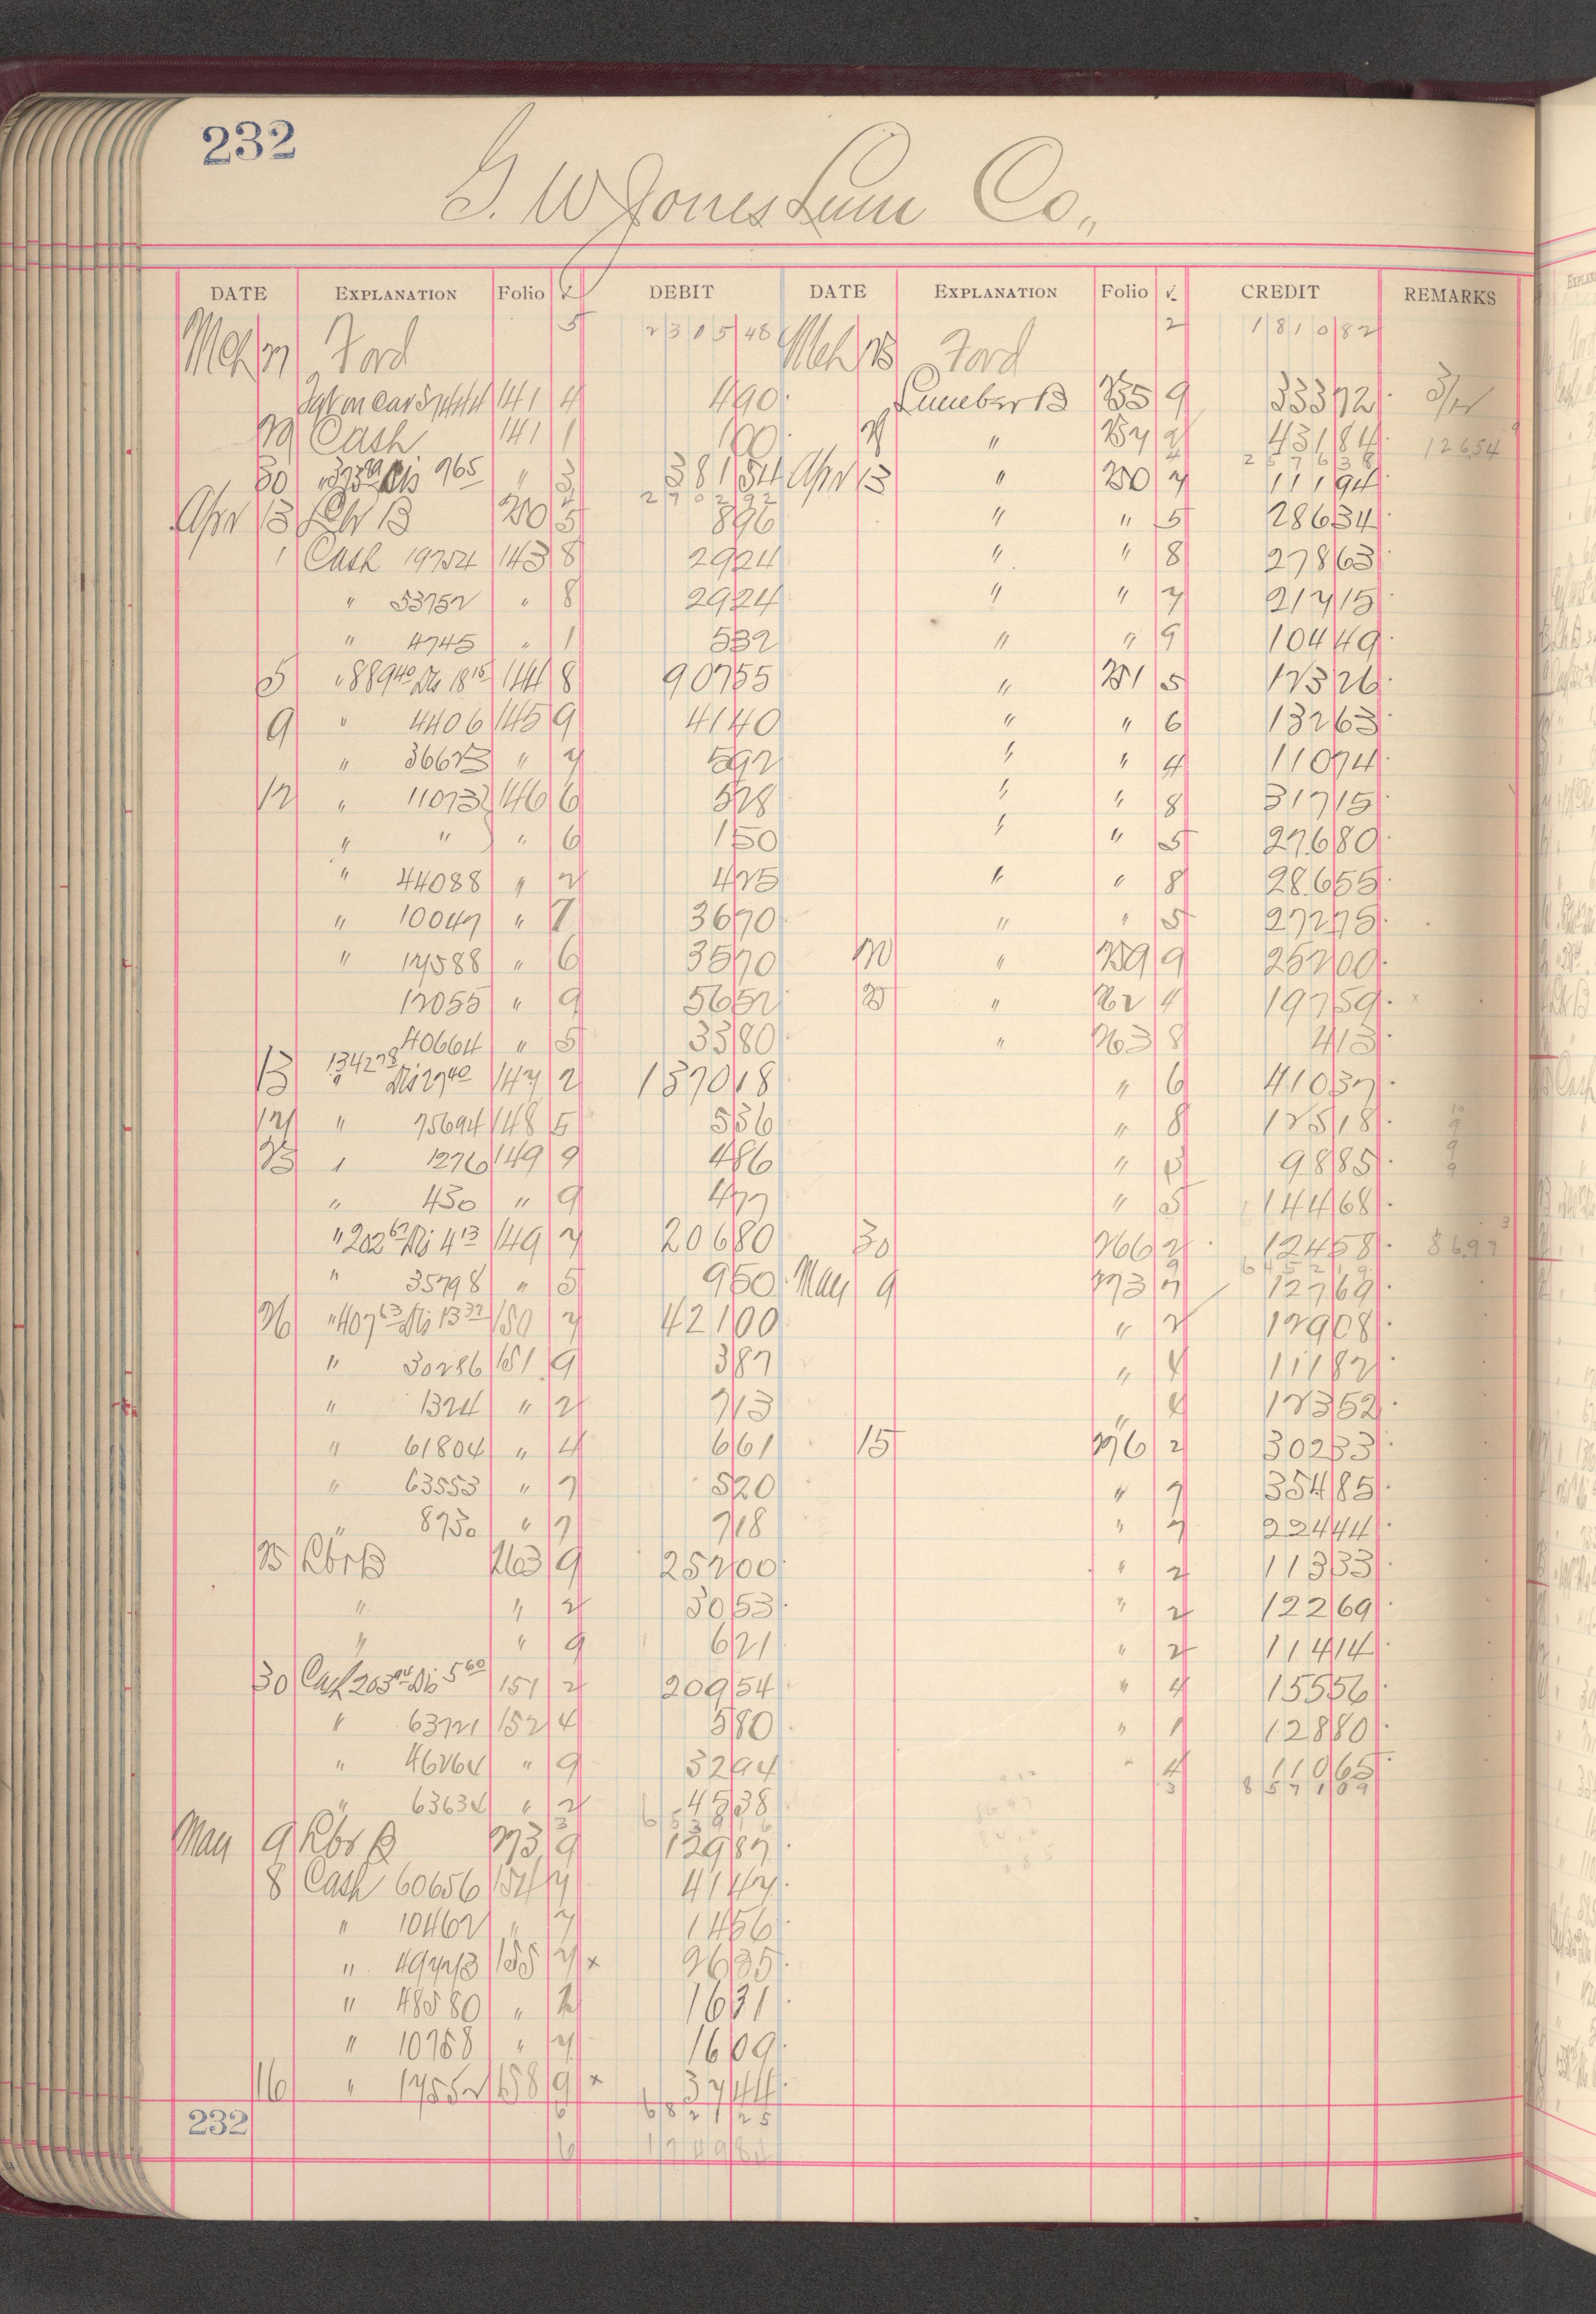 232
G. W Jones Lum Co.,
DATE EXPLANATION Folio √ DEBIT DATE EXPLANATION Folio √ CREDIT REMARKS
Mch 27 Ford 5 2305 48 Mch 25 Ford 2 1810 82
141 4 4 90 Lumber B 255 9 333 72
29 Cash 141 1 1 00 " 257 2 431 84 12654
30 " 9 65 " 3 381 54 Apr 13 " 250 7 111 94
2 5 7 6 3 8
2 7 0 2 9 2
Apr 13 Lbr B 250 5 8 96 " " 5 286 34
1 Cash 19754 143 8 29 24 " " 8 278 63
" 53752 " 8 29 24 " " 7 217 15
" 4745 " 1 5 32 " " 9 104 49
5 " 889 40 Dis 18 15 144 8 907 55 " 251 5 123 26
9 " 4406 145 9 41 40 " " 6 132 63
" 36623 " 7 5 92 " " 4 110 74
12 " 11073 146 6 5 28 " " 8 317 15
" " " 6 1 50 " " 5 276 80
" 44088 " 2 4 25 " " 8 286 55
" 10047 " 7 36 70 " " 5 272 75
" 12588 " 6 35 70 20 " 259 9 252 00
12055 " 9 56 52 25 " 262 4 197 59
40664 " 5 33 80 " 263 8 4 13
13 " 1342 78 Dis 27 40 147 2 1370 18 " 6 410 37
" 75694 148 5 5 36 " 8 125 18
" 1276 149 9 4 86 " 98 85
" 430 " 9 4 77 " 5 144 68
" 202 67 Dis 4 13 149 7 206 80 30 266 2 124 58 8697
" 35798 " 5 9 50 May 9 273 7 127 69
26 " 407 63 Dis 13 37 150 7 421 00 " 2 129 08
" 30286 151 9 3 87 " 4 111 82
" 1324 " 2 7 13 " 4 123 52
" 61804 " 4 6 61 15 276 2 302 33
" 63553 " 7 5 20 " 7 354 85
" 8730 " 7 7 18 " 7 224 44
25 Lbr B 263 9 252 00 " 2 113 33
" " 2 30 53 " 2 122 69
" " 9 6 21 " 2 114 14
30 Cash 203 94 Dis 5 60 151 2 209 54 " 4 155 56
" 63721 152 4 5 80 " 1 128 80
" 46264 " 9 32 94 " 4 110 65
3 8 5 7 1 0 9
" 63634 " 2 45 38
May 9 Lbr B 273 9 129 87
8 Cash 60656 154 7 41 47
" 10462 " 7 14 56
" 155 7 x 26 35
" 48580 " 2 16 31
" 10758 " 7 16 09
16 " 17552 158 9 x 37 44
232 6 6 8 2 1 2 5